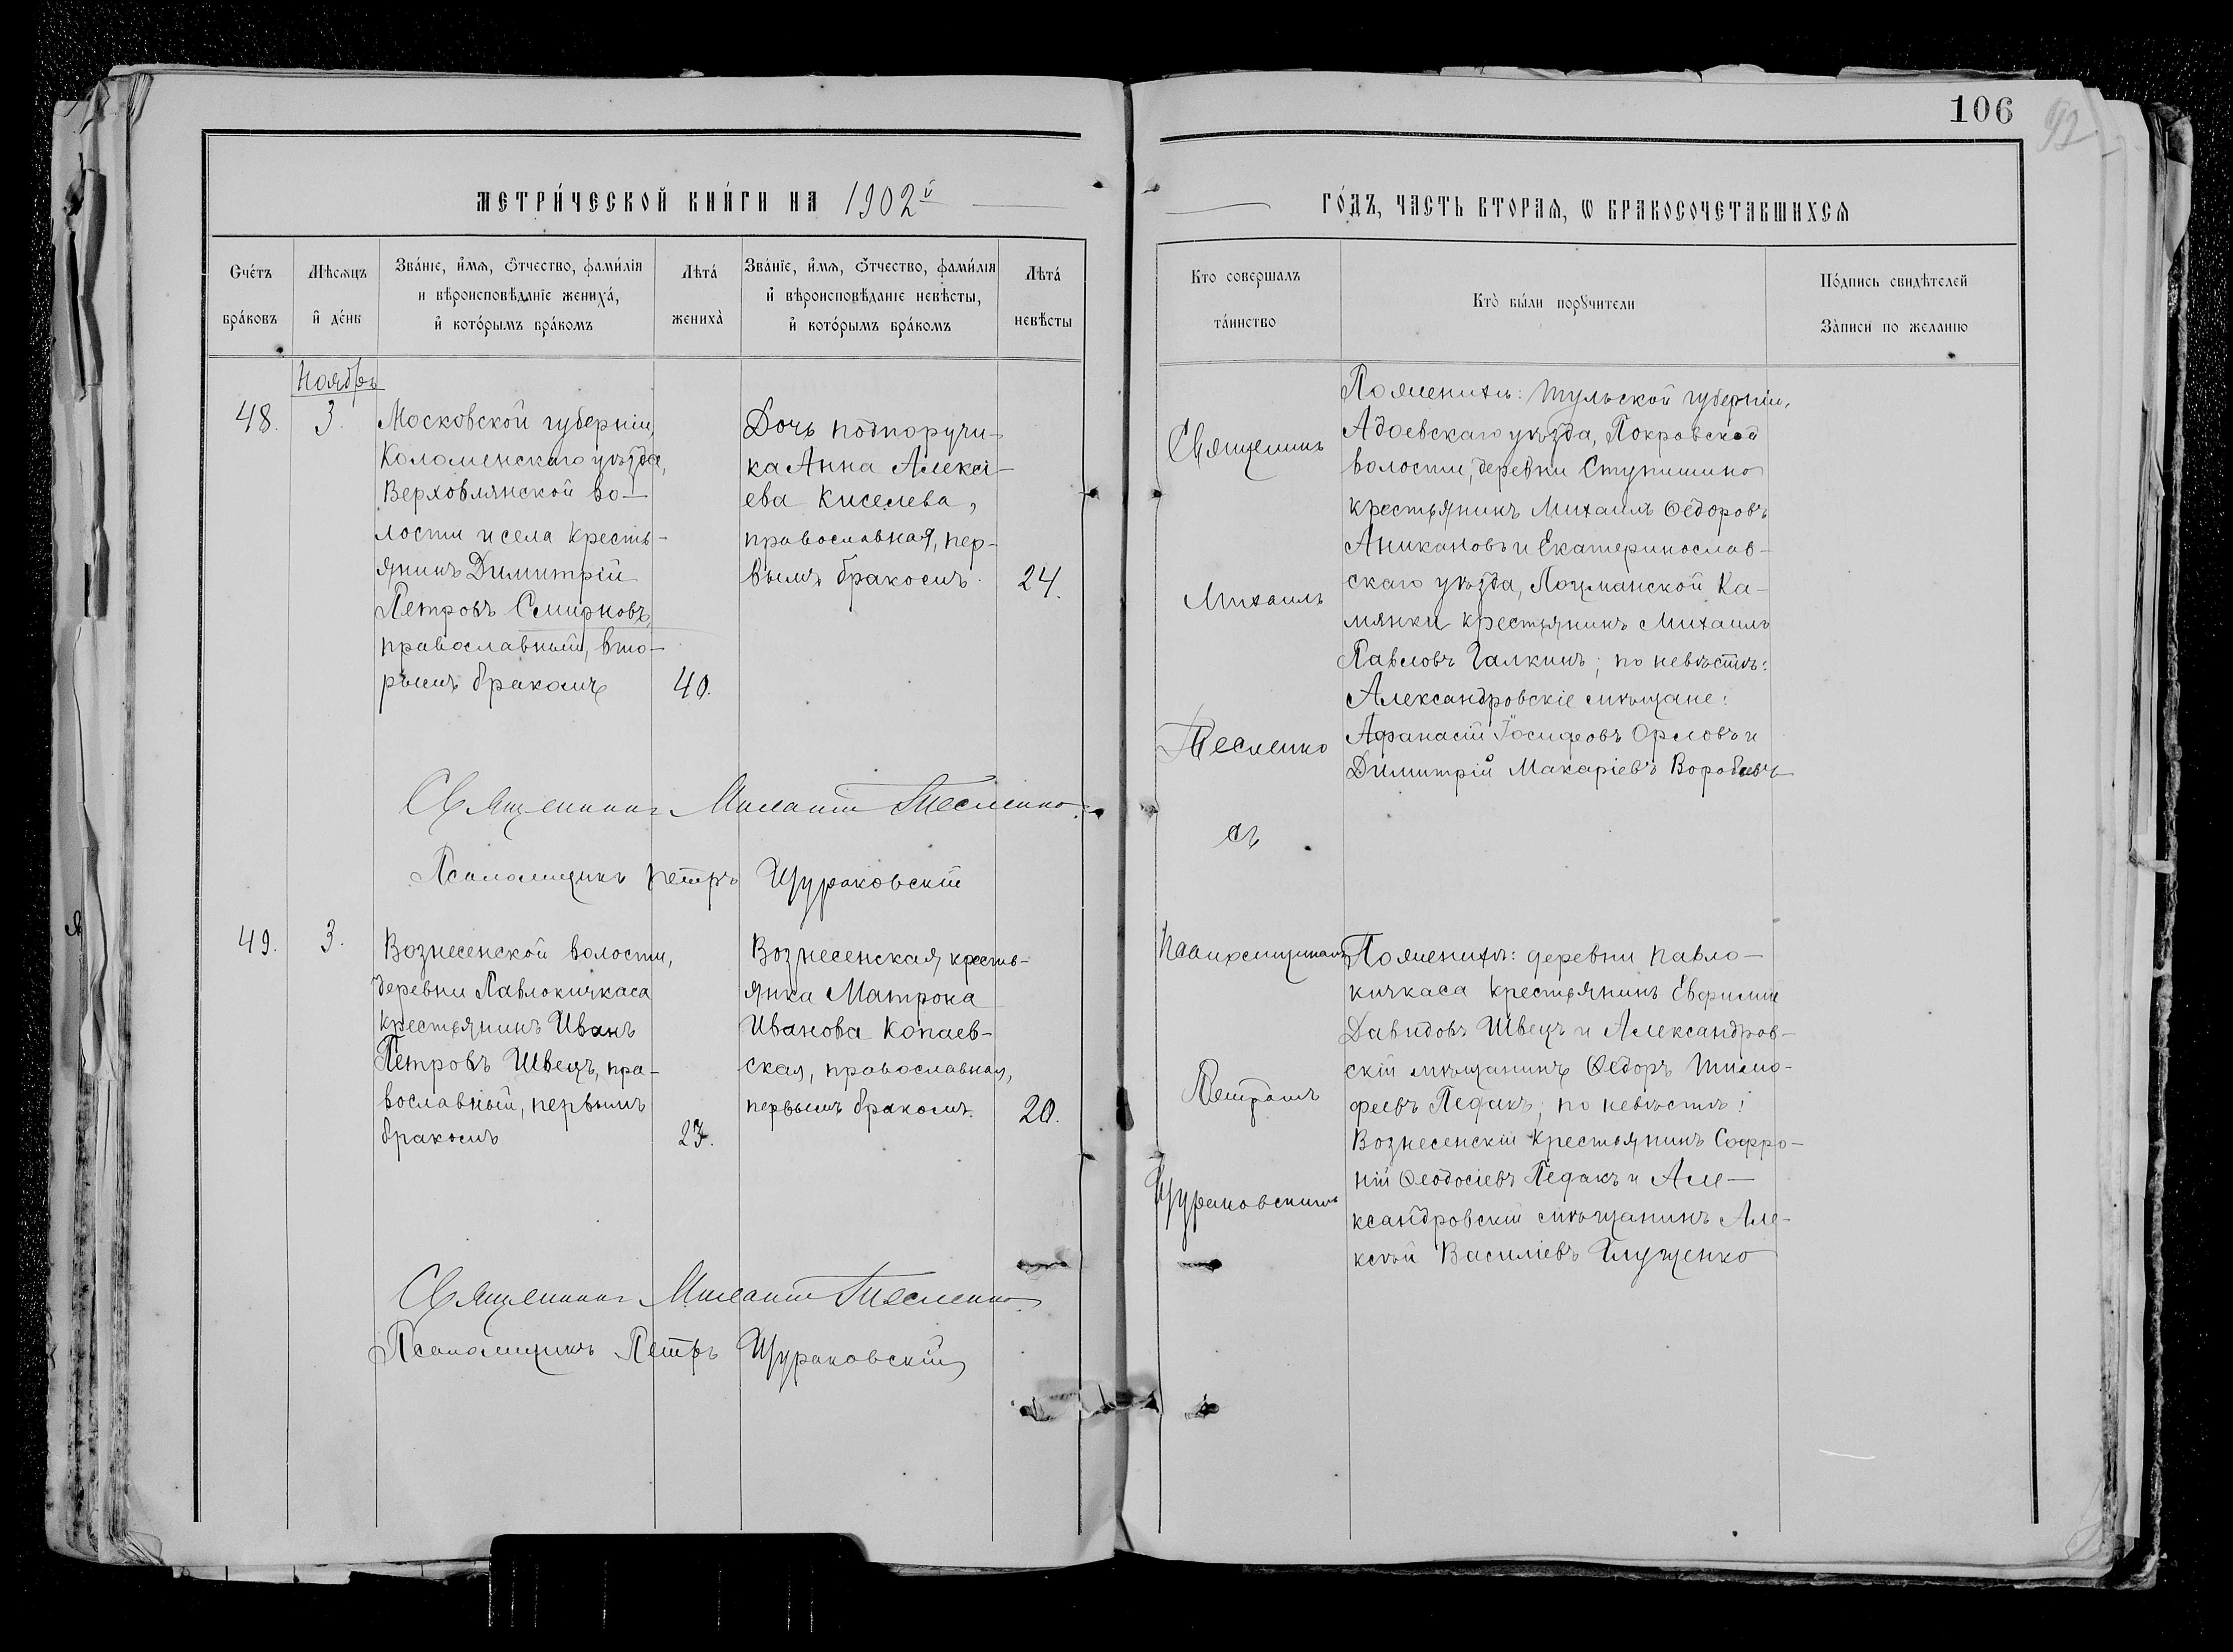 106
92
МЕТРИ́ЧЕСКОЙ КНИ́ГИ НА 1902й
ГО́ДЪ, ЧАСТЬ ВТОРАѦ, Ѡ БРАКОСОЧЕТАВШИХСѦ
Счéтъ
брáковъ
Мѣсѧцъ
и҆ дéнь
Звáнїе, и҆́мѧ, ѻ҆́тчество, фами́лїѧ
и вѣроисповѣ́данїе женихá,
и҆ кото́рымъ брáкомъ
Лѣтá
женихà
Звáнїе, и҆́мѧ, ѻ҆́тчество, фами́лїѧ
и҆ вѣроисповѣ́данїе невѣ́сты,
и҆ кото́рымъ брáкомъ
Лѣтá
невѣ́сты
Кто совершалъ
тáинство
Ктò бы́ли порꙋчители
Пóдпись свидѣ́телей
Зàписи по желанию
Ноябрь
48.
3.
Московской губерніи,
Коломенскаго уѣзда,
Верховлянской во-
лости и села кресть-
янинъ Димитрій
Петровъ Смирновъ,
православный, вто-
рымъ бракомъ
40.
Дочь подпоручи-
ка Анна Алексі-
ева Киселева,
православная, пер-
вымъ бракомъ.
24.
Священникъ
Михаилъ
Тесленко
съ
По женихѣ: Тульской губерніи,
Адоевскаго уѣзда, Покровской
волости, деревни Ступишино
крестьянинъ Михаилъ Ѳедоровъ
Аникановъ и Екатеринослав-
скаго уѣзда, Лоцманской Ка-
мянки крестьянинъ Михаилъ
Павловъ Галкинъ; по невѣстѣ:
Александровскіе мѣщане:
Афанасій Іосифовъ Орловъ и
Димитрій Макаріевъ Воробьевъ
Священникъ Михаилъ Тесленко.
Псаломщикъ Петръ Щураковскій
49.
3.
Вознесенской волости,
деревни Павлокичкаса
крестьянинъ Иванъ
Петровъ Швецъ, пра-
вославный, первымъ
бракомъ
23.
Вознесенская кресть-
янка Матрона
Иванова Копаев-
ская, православная,
первымъ бракомъ.
20.
Псаломщикомъ
Петромъ
Щураковскимъ
По женихѣ: деревни Павло-
кичкаса крестьянинъ Евфимій
Давидовъ Швецъ и Александров-
скій мѣщанинъ Ѳедоръ Тимо-
феевъ Педакъ; по невѣстѣ:
Вознесенскій крестьянинъ Софро-
ній Ѳеодосіевъ Педакъ и Але-
ксандровскій мѣщанинъ Але-
ксѣй Василіевъ Глущенко
Священникъ Михаилъ Тесленко.
Псаломщикъ Петръ Щураковскій